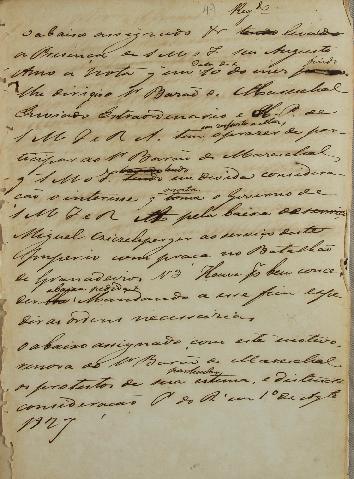 Regda
o abaixo assignado &c levado
a Presença de S M o I. seu Augusto
Amo a Nota q em data de 20 do mez
lhe dirigio o Sr Barão de Mareschal
Enviado Extraordinario e M. P. de
S M I e R A. tem o prazer de par-
ticipar ao Sr Barão de Mareschal,
q S M o I tendo em devida considera-
ção o interesse q toma o Governo de
S M I e R A pela baixa
Miguel ao serviço deste
Imperio com praça no Batalhão
de Granadeiros N 3 Houve por bem conce-
der a baixa pedida Mandando a esse fim expe-
dir as ordens necessarias
o abaixo assignado com este motivo
renova ao Sr Barão de Mareschal
os protestos de sua particular estima, e distincta
consideração P do Rº em 1º de Agto
1827